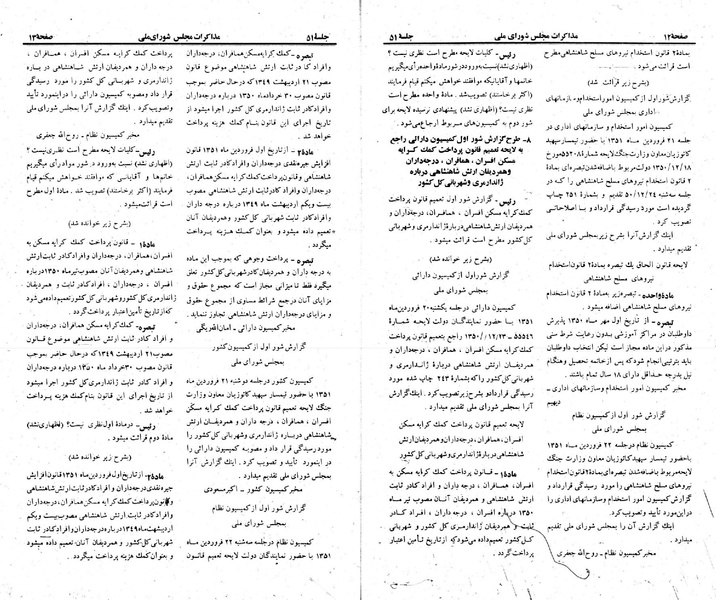 صفحه ۱۲ مذاکرات مجلس شورای ملی جلسه ۵۱
بماده ۲ قانون استخدام نیروهای مسلح شاهنشاهی مطرح
است قرائت میشود .
(بشرح زیر قرائت شد)
گزارش شور اول از کمیسیون امور استخدام و سازمانهای
اداری به مجلس شورای ملی
کمیسیون امور استخدام و سازمانهای اداری در
جلسه ۲۱ فروردین ماه ۱۳۵۱ با حضور تیمسار سپهبد
کاتوزیان معاون وزارت جنگ لایحه شماره ۵۵۲۰۸ مورخ
۱۳۵۰/۱۲/۱۸ دولت مربوط باضافه شدن تبصره‌ای بماده
۲ قانون استخدام نیروهای مسلح شاهنشاهی را که در
جلسه سه‌شنبه ۵۰/۱۲/۲۴ تقدیم و بشماره ۲۵۱ چاپ
گردیده است مورد رسیدگی قرارداد و با اصلاحاتی
تصویب کرد .
اینک گزارش آنرا بشرح زیر بمجلس شورای ملی
تقدیم میدارد .
لایحه قانون الحاق یک تبصره بماده ۲ قانون استخدام
نیروهای مسلح شاهنشاهی
ماده واحده - تبصره زیر بماده ۲ قانون استخدام
نیروهای مسلح شاهنشاهی اضافه میشود .
تبصره - از تاریخ اول مهر ماه ۱۳۵۰ پذیرش
داوطلبان در مراکز آموزشی بدون رعایت شرط سنی
مذکور در این ماده مجاز است لیکن انتخاب داوطلبان
باید بترتیبی انجام شود که پس از خاتمه تحصیل وهنگام
نیل بدرجه حداقل دارای ۱۸ سال تمام باشند .
مخبر کمیسیون امور استخدام و سازمانهای اداری -
دیهیم
گزارش شور اول از کمیسیون نظام
به مجلس شورای ملی
کمیسیون نظام در جلسه ۲۲ فروردین ماه ۱۳۵۱
با حضور تیمسار سپهبد کاتوزیان معاون وزارت جنگ
لایحه مربوط باضافه شدن تبصره‌ای بماده ۲ قانون استخدام
نیروهای مسلح شاهنشاهی را مورد رسیدگی قرارداد و
گزارش کمیسیون استخدام و سازمانهای اداری را
در این مورد تأیید و تصویب کرد .
اینک گزارش آن را بمجلس شورای ملی تقدیم
میدارد .
مخبر کمیسیون نظام - روح‌الله جعفری
رئیس - کلیات لایحه مطرح است نظری نیست ؟
(اظهاری نشد) نسبت به ورود در شور ماده واحده رأی میگیریم
خانمها و آقایانیکه موافقند خواهش میکنم قیام فرمایند
(اکثر برخاستند) تصویب شد . ماده واحده مطرح است
نظری نیست ؟ (اظهاری نشد) پیشنهادی نرسیده لایحه برای
شور دوم به کمیسیون های مربوط ارجاع میشود .
۸- طرح گزارش شور اول کمیسیون دارائی راجع
به لایحه تعمیم قانون پرداخت کمک کرایه
مسکن افسران ، همافران ، درجه‌داران
و همردیفان ارتش شاهنشاهی درباره
ژاندارمری و شهربانی کل کشور
رئیس - گزارش شور اول تعمیم قانون پرداخت
کمک کرایه مسکن افسران ، همافسران ، درجه‌داران و
همردیفان ارتش شاهنشاهی درباره ژاندارمری و شهربانی
کل کشور مطرح است قرائت میشود .
(بشرح زیر خوانده شد)
گزارش شور اول از کمیسیون دارائی
به مجلس شورای ملی
کمیسیون دارائی در جلسه یکشنبه ۲۰ فروردین ماه
۱۳۵۱ با حضور نمایندگان دولت لایحه شماره
۵۵۵۴۹ - ۱۳۵۰/۱۲/۲۳ راجع بتعمیم قانون پرداخت
کمک کرایه مسکن افسران ، همافران ، درجه‌داران و
همردیفان ارتش شاهنشاهی درباره ژاندارمری و
شهربانی کل کشور را که بشماره ۲۴۳ چاپ شده مورد
رسیدگی قرارداد و بشرح زیر تصویب کرد . اینک گزارش
آنرا بمجلس شورای ملی تقدیم میدارد .
لایحه قانون تعمیم قانون پرداخت کمک کرایه مسکن
افسران ، همافران ، درجه‌داران و همردیفان ارتش
شاهنشاهی درباره ژاندارمری و شهربانی کل کشور
ماده ۱ - قانون پرداخت کمک کرایه مسکن به
افسران ، همافران ، درجه‌داران و افراد کادر ثابت
ارتش شاهنشاهی و همردیفان آنان مصوب تیر ماه
۱۳۵۰ درباره افسران ، درجه داران ، افراد کادر
ثابت و همردیفان ژاندارمری کل کشور و شهربانی
کل کشور تعمیم داده میشود که از تاریخ تأمین اعتبار
پرداخت گردد .
جلسه ۵۱ مذاکرات مجلس شورای ملی صفحه ۱۳
تبصره - کمک کرایه مسکن همافران ، درجه‌داران
وافراد کادر ثابت ارتش شاهنشاهی موضوع قانون
مصوب ۲۱ اردیبهشت ۱۳۴۹ که درحال حاضر بموجب
قانون مصوب ۳۰ خرداد ماه ۱۳۵۰ درباره درجه‌داران
و افراد کادر ثابت ژاندارمری کل کشور اجرا میشود از
تاریخ اجرای این قانون بنام کمک هزینه پرداخت
خواهد شد .
ماده ۲ - از تاریخ اول فروردین ماه ۱۳۵۱ قانون
افزایش جیره نقدی درجه‌داران و افراد کادر ثابت ارتش
شاهنشاهی و قانون پرداخت کمک کرایه مسکن همافران ،
درجه‌داران و افراد کادر ثابت ارتش شاهنشاهی مصوب
بیست و یکم اردیبهشت ماه ۱۳۴۹ درباره درجه داران
و افراد کادر ثابت شهربانی کل کشور و همردیفان آنان
تعمیم داده میشود و بعنوان کمک هزینه پرداخت
میگردد .
تبصره - پرداخت وجوهی که بموجب این ماده
به درجه داران و همردیفان کادر شهربانی کل کشور تعلق
میگیرد فقط تا میزانی مجاز است که مجموع حقوق و
مزایای آنان در جمع شرائط مساوی از مجموع حقوق
و مزایای درجه‌داران ارتش شاهنشاهی تجاوز ننماید .
مخبر کمیسیون دارائی - امان‌الله ریگی
گزارش شور اول از کمیسیون کشور
به مجلس شورای ملی
کمیسیون کشور در جلسه دوشنبه ۲۱ فروردین ماه
۱۳۵۱ با حضور تیمسار سپهبد کاتوزیان معاون وزارت
جنگ لایحه قانون پرداخت کمک کرایه مسکن
افسران ، همافران ، درجه داران و همردیفان ارتش
شاهنشاهی درباره ژاندارمری و شهربانی کل کشور را
مورد رسیدگی قرار داد و مصوبه کمیسیون دارائی را
در اینمورد تأیید و تصویب کرد . اینک گزارش آنرا
بمجلس شورای ملی تقدیم میدارد .
مخبر کمیسیون کشور - اکبر مسعودی
گزارش شور اول از کمیسیون نظام
به مجلس شورای ملی
کمیسیون نظام در جلسه سه شنبه ۲۲ فروردین ماه
۱۳۵۱ با حضور نمایندگان دولت لایحه تعمیم قانون
پرداخت کمک کرایه مسکن افسران ، همافران ،
درجه‌داران و همردیفان ارتش شاهنشاهی درباره
ژاندارمری و شهربانی کل کشور را مورد رسیدگی
قرار داد و مصوبه کمیسیون دارائی را در اینمورد تأیید
و تصویب کرد . اینک گزارش آنرا بمجلس شورای ملی
تقدیم میدارد .
مخبر کمیسیون نظام - روح‌الله جعفری
رئیس - کلیات لایحه مطرح است نظری نیست ؟
(اظهاری نشد) نسبت به ورود در شور مواد رأی میگیریم
خانمها و آقایانی که موافقند خواهش میکنم قیام
فرمایند (اکثر برخاستند) تصویب شد . ماده اول مطرح
است قرائت میشود .
(بشرح زیر خوانده شد)
ماده ۱ - قانون پرداخت کمک کرایه مسکن به
افسران، همافران، درجه‌داران و افراد کادر ثابت ارتش
شاهنشاهی و همردیفان آنان مصوب تیر ماه ۱۳۵۰ درباره
افسران ، درجه‌داران ، افراد کادر ثابت و همردیفان
ژاندارمری کل کشور و شهربانی کل کشور تعمیم داده میشود
که از تاریخ تأمین اعتبار پرداخت گردد .
تبصره - کمک کرایه مسکن همافران ، درجه‌داران
و افراد کادر ثابت ارتش شاهنشاهی موضوع قانون
مصوب ۲۱ اردیبهشت ۱۳۴۹ که درحال حاضر بموجب
قانون مصوب ۳۰ خرداد ماه ۱۳۵۰ درباره درجه‌داران
و افراد کادر ثابت ژاندارمری کل کشور اجرا میشود
از تاریخ اجرای این قانون بنام کمک هزینه پرداخت
خواهد شد .
رئیس - در ماده اول نظری نیست ؟ (اظهاری نشد)
ماده دوم قرائت میشود .
(بشرح زیر خوانده شد)
ماده ۲ - از تاریخ اول فروردین ماه ۱۳۵۱ قانون افزایش
جیره نقدی درجه‌داران و افراد کادر ثابت ارتش شاهنشاهی
وقانون پرداخت کمک کرایه مسکن همافران، درجه‌داران
و افراد کادر ثابت ارتش شاهنشاهی مصوب بیست و یکم
اردیبهشت ماه ۱۳۴۹ درباره درجه‌داران و افراد کادر ثابت
شهربانی کل کشور و همردیفان آنان تعمیم داده میشود
و بعنوان کمک هزینه پرداخت میگردد .